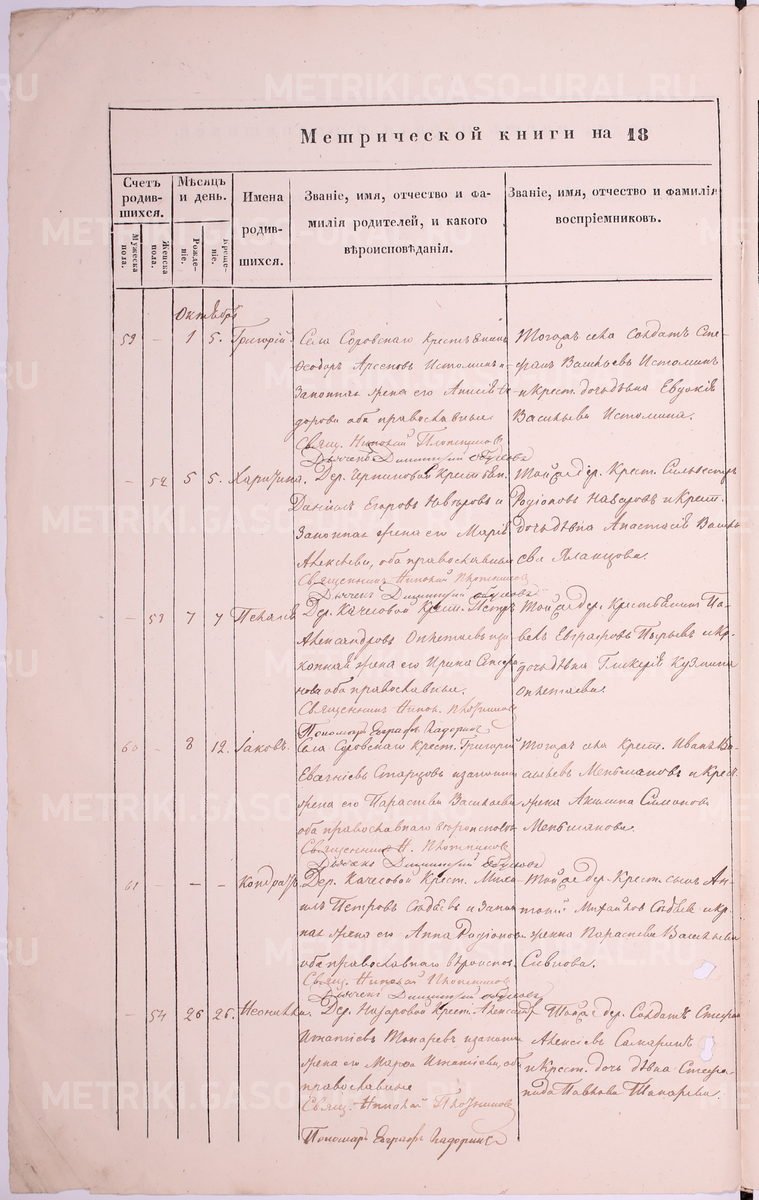 Метрической книги на 18
Счетъ родив-шихся.
Мужеска пола.
Женска пола.
Мѣсяцъ и день.
Рожде-ніе.
Креще-ніе.
Имена
родив-
шихся.
Званіе, имя, отчество и фа-
милія родителей, и какого
вѣроисповѣданія.
Званіе, имя, отчество и фамилія
воспріемниковъ.
Октябрь
59 - 1 5. Григорій.
Села Суровскаго Крестьянинъ
Ѳеодоръ Арсеновъ Истоминъ и
Законная жена его Анисія Ѳе-
дорова оба православные
Свящ. Николай Плотниковъ
Дьяченъ Димитрій
Тогожъ села Солдатъ Сте-
фанъ Васильевъ Истоминъ
и Крест. дочь дѣвка Евдокія
Васильева Истомина.
- 52 5 5. Харитина.
Дер. Крестьян.
Даніилъ Егоровъ и
Законная жена его Марія
Алексѣева, оба православные
Священникъ Николай Плотниковъ
Дьяченъ Димитрій
Тойже дер. Крест. Сильвестръ
Родіоновъ и Крест.
дочь дѣвка Анастасія Василь-
ева Яланцова.
- 53 7 7 Пелагія
Дер. Качесовой Крест. Петръ
Александровъ и за-
конная жена его Ирина Стефа-
нова оба православные.
Священникъ Никол. Плотниковъ
Пономарь Евграфъ
Тойже дер. Крестьянинъ Па-
велъ Евграфовъ и Кр.
дочь дѣвка Гликерія Кузмина
60 - 8 12. Іаковъ.
Села Суровскаго Крест. Григорій
Евгеніевъ Старцовъ и законная
жена его Параскева Васильева
оба православнаго вѣроисповѣ.
Священникъ Н. Плотниковъ
Дьяченъ Димитрій
Тогожъ села Крест. Иванъ Ва-
сильевъ Меньшаковъ и Крест.
жена Акилина Симонова
Меньшакова.
61 - - - Кондратъ
Дер. Качесовой Крест. Миха-
илъ Петровъ и Закон-
ная жена его Анна Родіонова
оба православнаго вѣроиспов.
Свящ. Николай Плотниковъ
Дьяченъ Димитрій
Тойже дер. Крест. сынъ Ан-
тоній Михайловъ и Кр.
женка Параскева Васильева
- 54 26 26. Неонилла.
Дер. Назаровой Крест. Александръ
Игнатіевъ Токаревъ и законная
жена его Марѳа Игнатіева, оба
православные
Свящ. Николай Плотниковъ
Пономарь Евграфъ
Тойже дер. Солдатъ Стефанъ
Алексѣевъ Самаринъ
и Крест. дочь дѣвка Степа-
нида Павлова Токарева.
METRIKI.GASO-URAL.RU